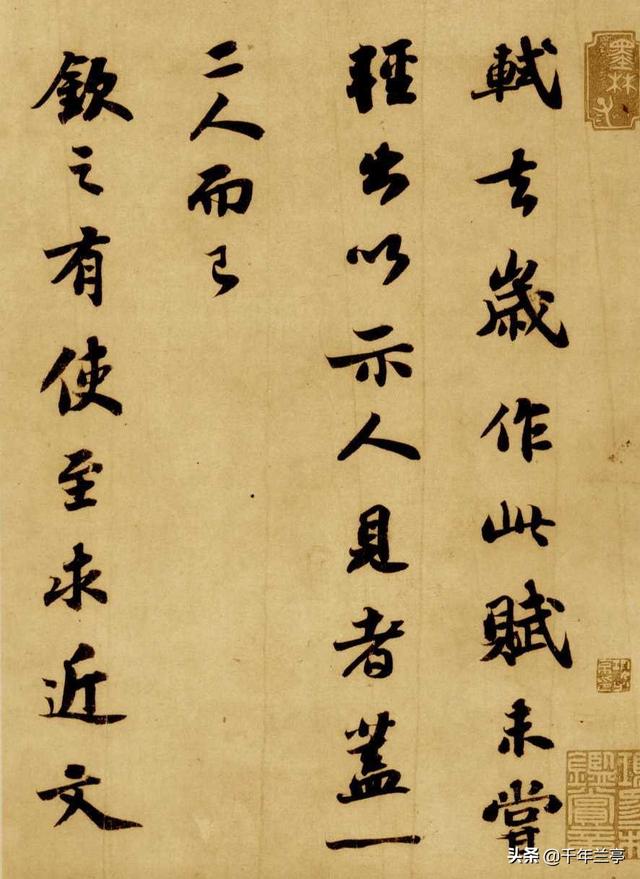 軾去歲作此賦未嘗
輕出以示人見者蓋一
二人而已
欽之有使至求近文
墨林
頭条 @千年兰亭